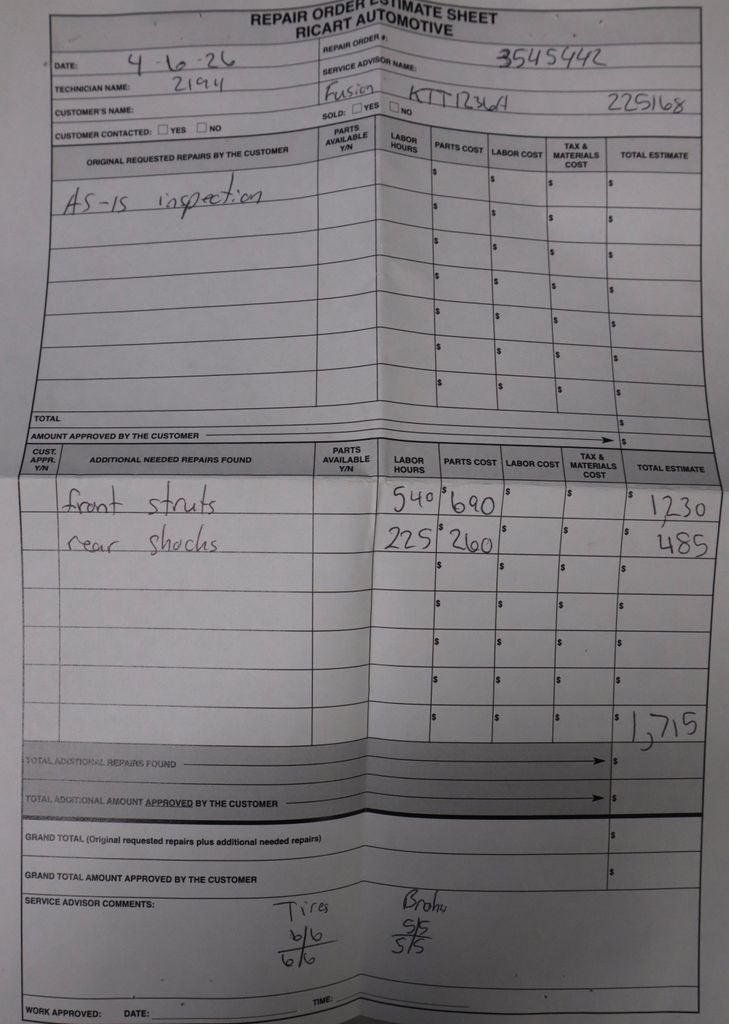 REPAIR ORDER ESTIMATE SHEET
RICART AUTOMOTIVE
DATE: 4-6-26
REPAIR ORDER #: 3545442
TECHNICIAN NAME: 2194
SERVICE ADVISOR NAME:
CUSTOMER'S NAME: Fusion KTT1236A 225168
CUSTOMER CONTACTED: YES NO SOLD: YES NO
ORIGINAL REQUESTED REPAIRS BY THE CUSTOMER PARTS AVAILABLE Y/N LABOR HOURS PARTS COST LABOR COST TAX & MATERIALS COST TOTAL ESTIMATE
$ $ $ $
AS-IS inspection $ $ $ $
$ $ $ $
$ $ $ $
$ $ $ $
$ $ $ $
$ $ $ $
TOTAL $
AMOUNT APPROVED BY THE CUSTOMER $
CUST. APPR. Y/N ADDITIONAL NEEDED REPAIRS FOUND PARTS AVAILABLE Y/N LABOR HOURS PARTS COST LABOR COST TAX & MATERIALS COST TOTAL ESTIMATE
front struts 540 $690 $ $ $1,230
rear shocks 225 $260 $ $ $ 485
$ $ $ $
$ $ $ $
$ $ $ $
$ $ $ $
$ $ $ $1,715
TOTAL ADDITIONAL REPAIRS FOUND $
TOTAL ADDITIONAL AMOUNT APPROVED BY THE CUSTOMER $
GRAND TOTAL (Original requested repairs plus additional needed repairs) $
GRAND TOTAL AMOUNT APPROVED BY THE CUSTOMER $
SERVICE ADVISOR COMMENTS: Tires
6/6 5/5
6/6 5/5
WORK APPROVED: DATE: TIME: